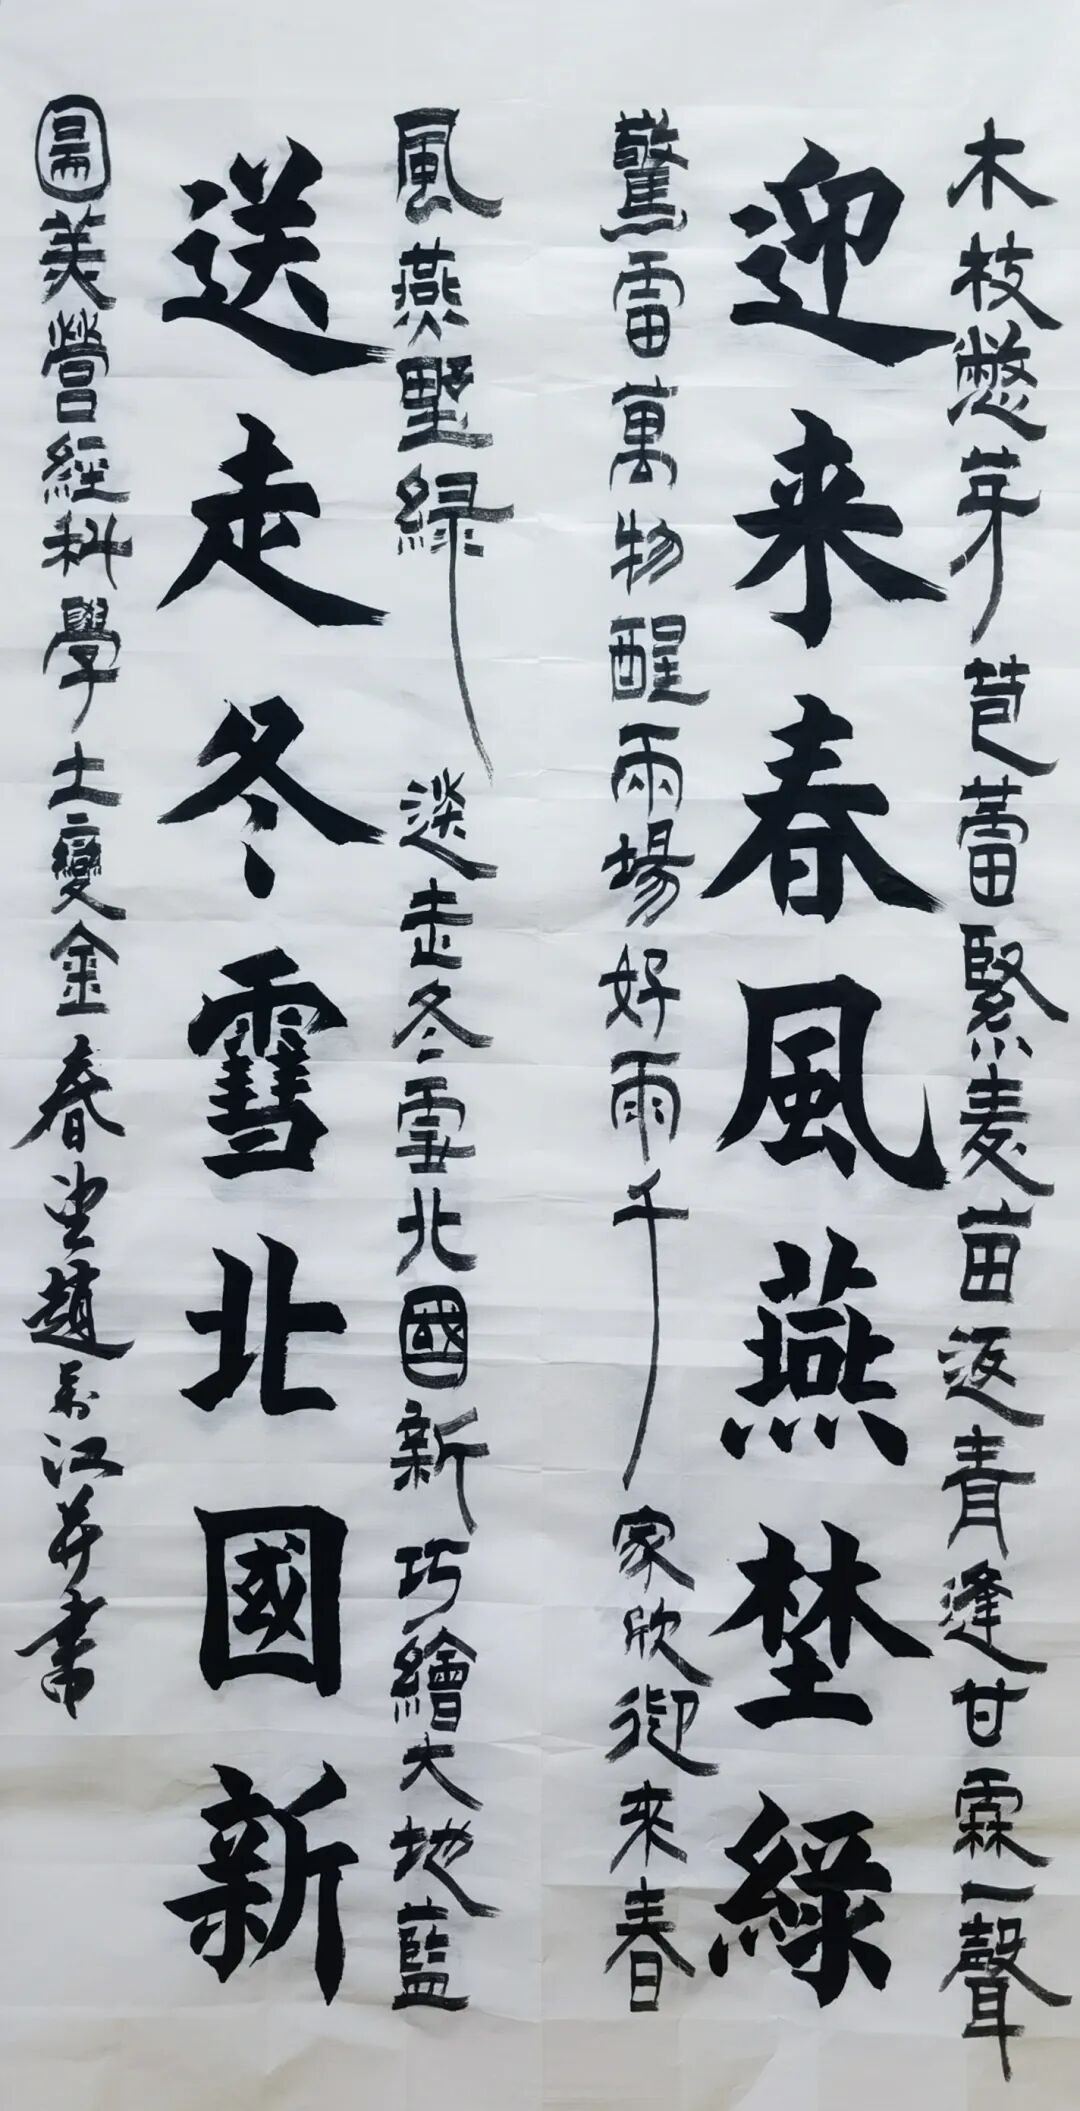 木枝憋芽芭蕾緊麦苗返青逢甘霖一聲
迎来春風燕埜綠
驚雷萬物醒兩場好雨千家欣迎来春
風燕墅綠送走冬雪北國新巧繪大地藍
送走冬雪北國新
圖美營經科學土變金春望趙萬江并書